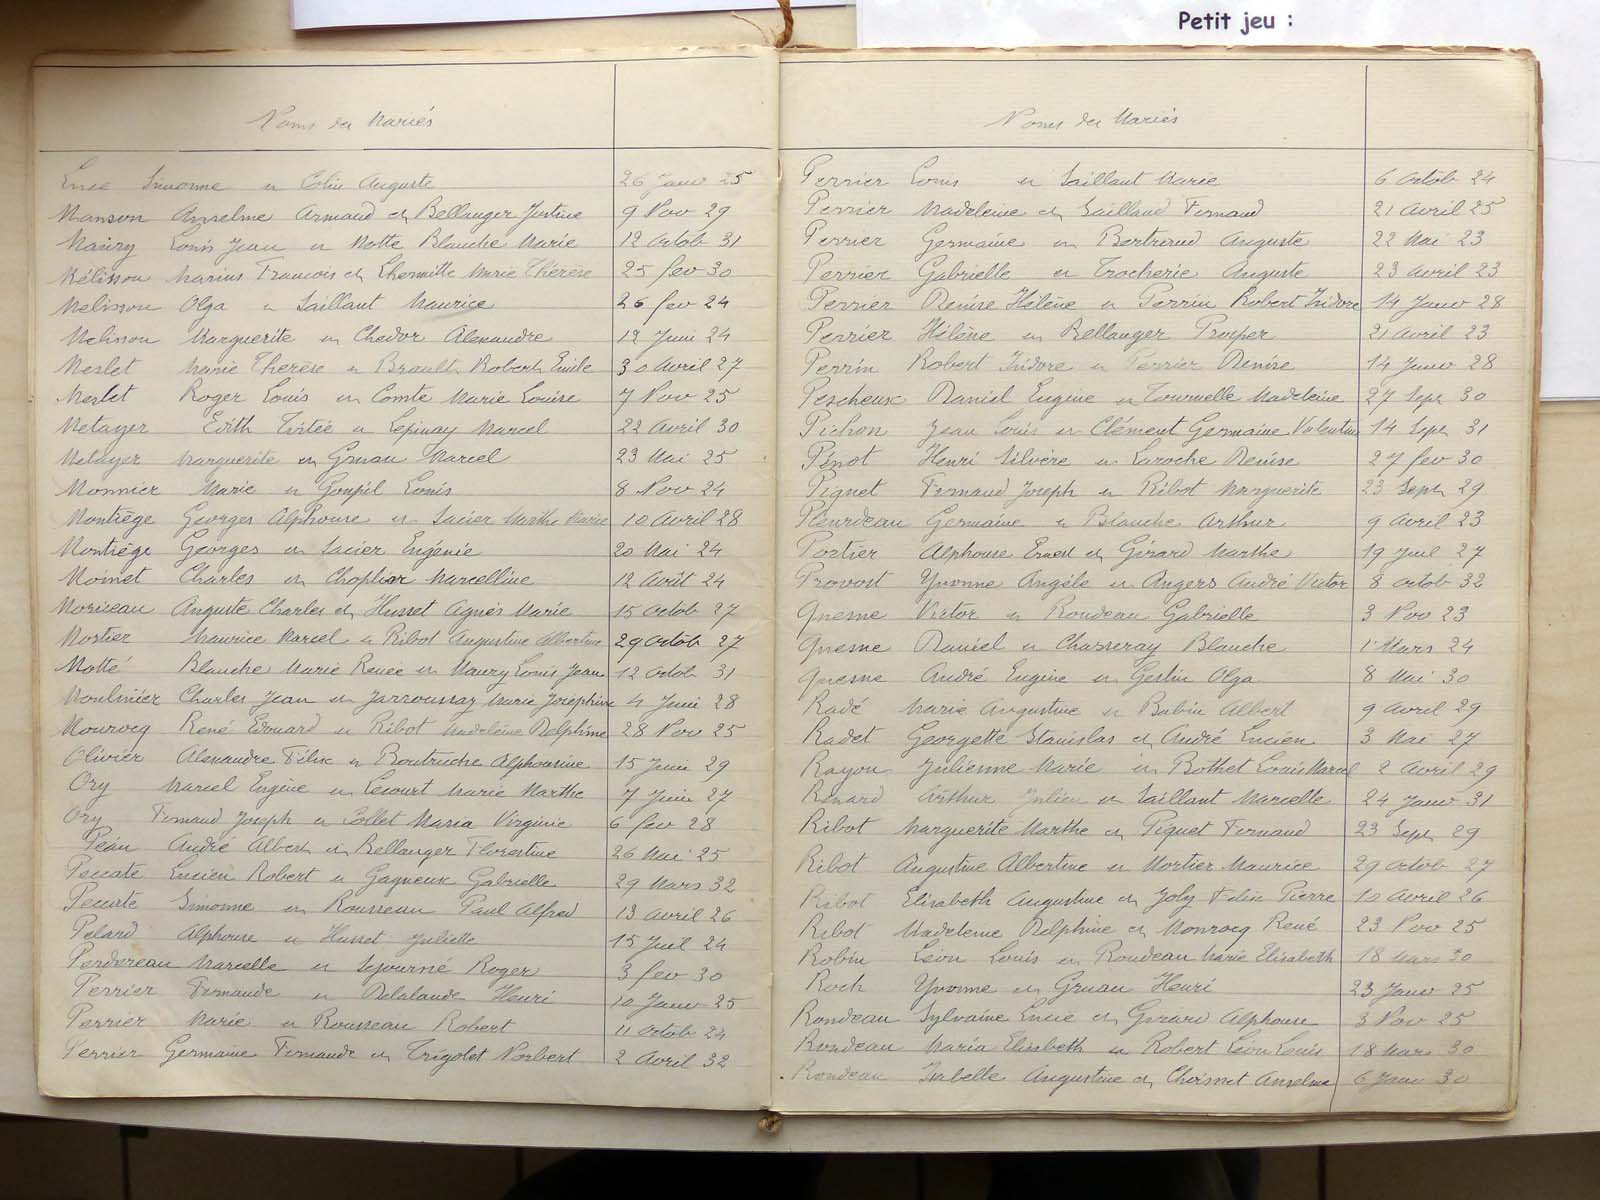 Petit jeu :
Noms des Mariés
Luce Simonne et Colin Auguste 26 Janv 25
Manson Anselme Armand et Bellanger Justine 9 Nov 29
Maury Louis Jean et Motté Blanche Marie 12 Octob 31
Mélisson Marius François et Lhermitte Marie Thérèse 25 fev 30
Melisson Olga et Saillant Maurice 26 fev 24
Melisson Marguerite et Chedor Alexandre 12 Juin 24
Meslet Marie Thérèse et Brault Robert Emile 30 Avril 27
Meslet Roger Louis et Comte Marie Louise 7 Nov 25
Metayer Edith et Lepinay Marcel 22 Avril 30
Metayer Marguerite et Gruau Marcel 23 Mai 25
Monnier Marie et Goupil Louis 8 Nov 24
Montiège Georges Alphonse et Lacier Marthe Marie 10 Avril 28
Montiège Georges et Lacier Eugénie 20 Mai 24
Moinet Charles et Choplier Marcelline 12 Août 24
Moriceau Auguste Charles et Husset Agnès Marie 15 Octob 27
Mortier Maurice Marcel et Ribot Augustine Albertine 29 Octob 27
Motté Blanche Marie Renée et Maury Louis Jean 12 Octob 31
Moulinier Charles Jean et Jarroussay Marie Joséphine 4 Juin 28
Mourocq René Edouard et Ribot Madeleine Delphine 28 Nov 25
Olivier Alexandre Félix et Boutruche Alphonsine 15 Juin 29
Ory Marcel Eugène et Lecourt Marie Marthe 7 Juin 27
Ory Fernand Joseph et Collet Maria Virginie 6 fev 28
Péan André Albert et Bellanger Florentine 26 Mai 25
Peccate Lucien Robert et Gagneux Gabrielle 29 Mars 32
Peccate Simonne et Rousseau Paul Alfred 13 Avril 26
Pelard Alphonse et Husset Juliette 15 Juil 24
Perdereau Marcelle et Sejourné Roger 3 fev 30
Perrier Fernande et Delalande Henri 10 Janv 25
Perrier Marie et Rousseau Robert 11 Octob 24
Perrier Germaine Fernande et Trigolet Norbert 2 Avril 32
Noms des Mariés
Perrier Louis et Saillant Marie 6 Octob 24
Perrier Madeleine et Saillant Fernand 21 Avril 25
Perrier Germaine et Bertrand Auguste 22 Mai 23
Perrier Gabrielle et Trocherie Auguste 23 Avril 23
Perrier Denise Hélène et Perrin Robert Isidore 14 Janv 28
Perrier Hélène et Bellanger Prosper 21 Avril 23
Perrin Robert Isidore et Perrier Denise 14 Janv 28
Pescheux Daniel Eugène et Tournelle Madeleine 27 Sept 30
Pichon Jean Louis et Clément Germaine Valentine 14 Sept 31
Pinot Henri Silvère et Laroche Denise 27 fev 30
Piquet Fernand Joseph et Ribot Marguerite 23 Sept 29
Pleurdeau Germaine et Blanche Arthur 9 Avril 23
Portier Alphonse Ernest et Gérard Marthe 19 Juil 27
Provost Yvonne Angèle et Angers André Victor 8 Octob 32
Quesne Victor et Rondeau Gabrielle 3 Nov 23
Quesne Daniel et Chasseray Blanche 1er Mars 24
Quesne André Eugène et Geslin Olga 8 Mai 30
Radé Marie Augustine et Babin Albert 9 Avril 29
Radet Georgette Stanislas et André Lucien 3 Mai 27
Rayon Julienne Marie et Bothet Louis Marcel 2 Avril 29
Renard Arthur Julien et Saillant Marcelle 24 Janv 31
Ribot Marguerite Marthe et Piquet Fernand 23 Sept 29
Ribot Augustine Albertine et Mortier Maurice 29 Octob 27
Ribot Elisabeth Augustine et Joly Felix Pierre 10 Avril 26
Ribot Madeleine Delphine et Monrocq René 23 Nov 25
Robin Léon Louis et Rondeau Marie Elisabeth 18 Mars 30
Roch Yvonne et Gruau Henri 23 Janv 25
Rondeau Sylvaine Lucie et Gérard Alphonse 3 Nov 25
Rondeau Maria Elisabeth et Robert Léon Louis 18 Mars 30
Rondeau Isabelle Augustine et Choisnet Anselme 6 Janv 30